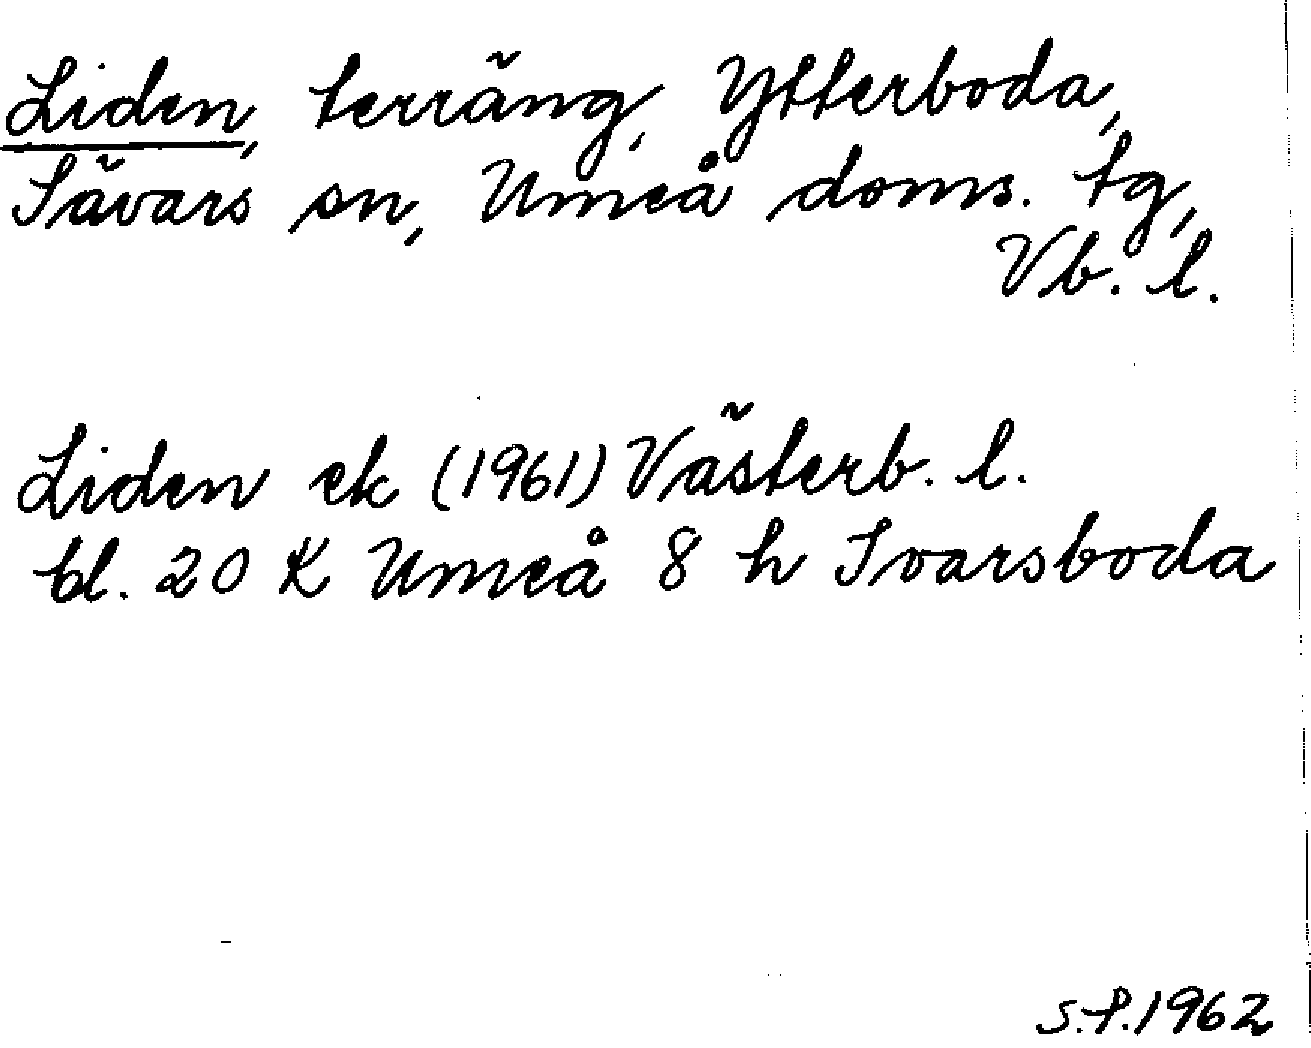 Liden, terräng, Ytterboda,
Sävars sn, Umeå doms. tg,
Vb. l.
Liden ek (1961) Västerb. l.
bl. 20 K Umeå 8 h Ivarsboda
S.f. 1962